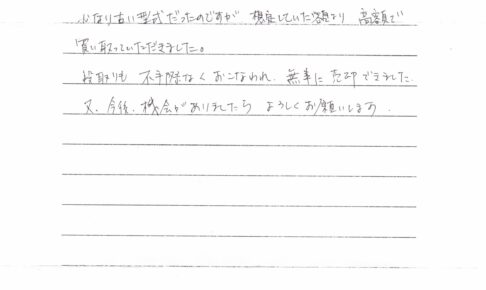 かなり古い型式だったのですが 想定していた額より 高額で
買い取っていただきました。
段取りも 不手際なく おこなわれ、無事に 売却できました.
又、今後、機会がありましたら よろしくお願いします.